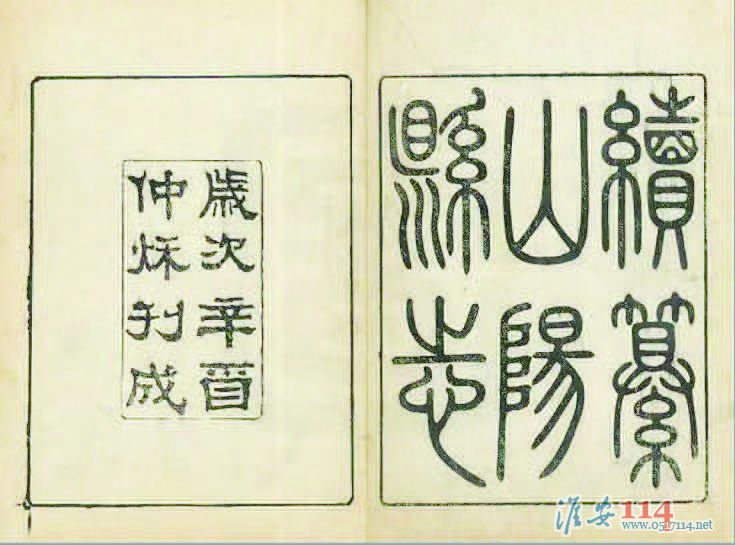 續纂
山陽
縣志
歲次辛酉
仲秌刊成
淮安114
www.0517114.net